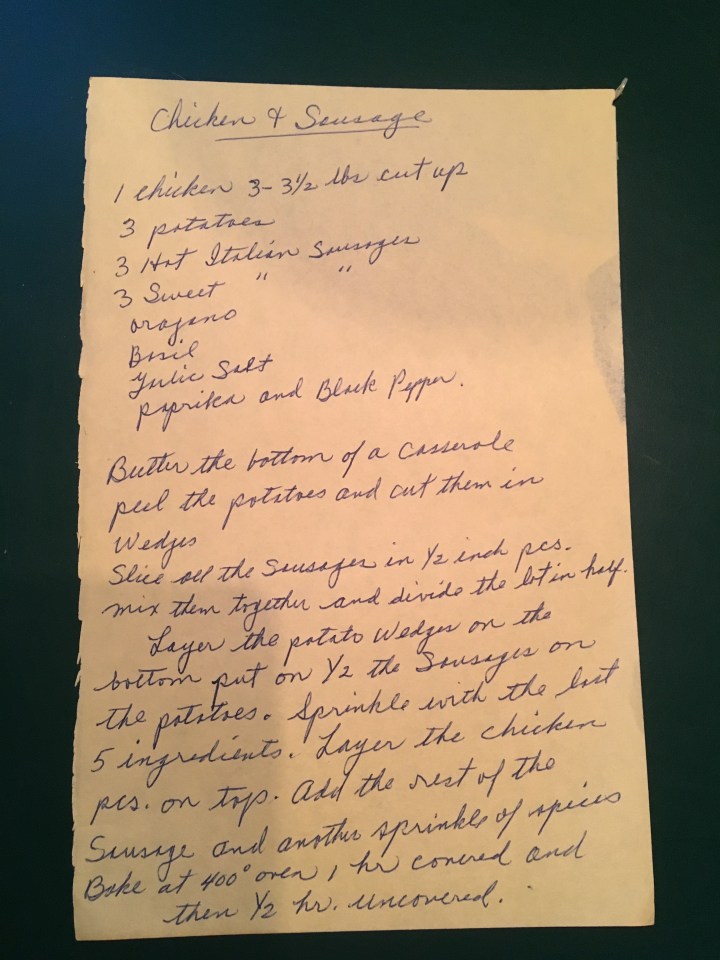 Chicken & Sausage
1 chicken 3-3½ lbs cut up
3 potatoes
3 Hot Italian Sausages
3 Sweet " "
oragano
Basil
Garlic Salt
paprika and Black Pepper.
Butter the bottom of a casserole
peel the potatoes and cut them in
Wedges
Slice all the Sausages in ½ inch pcs.
mix them together and divide the lot in half.
Layer the potato Wedges on the
bottom put on ½ the Sausages on
the potatoes. Sprinkle with the last
5 ingredients. Layer the chicken
pcs. on top. Add the rest of the
Sausage and another sprinkle of spices
Bake at 400° oven 1 hr covered and
then ½ hr. uncovered.